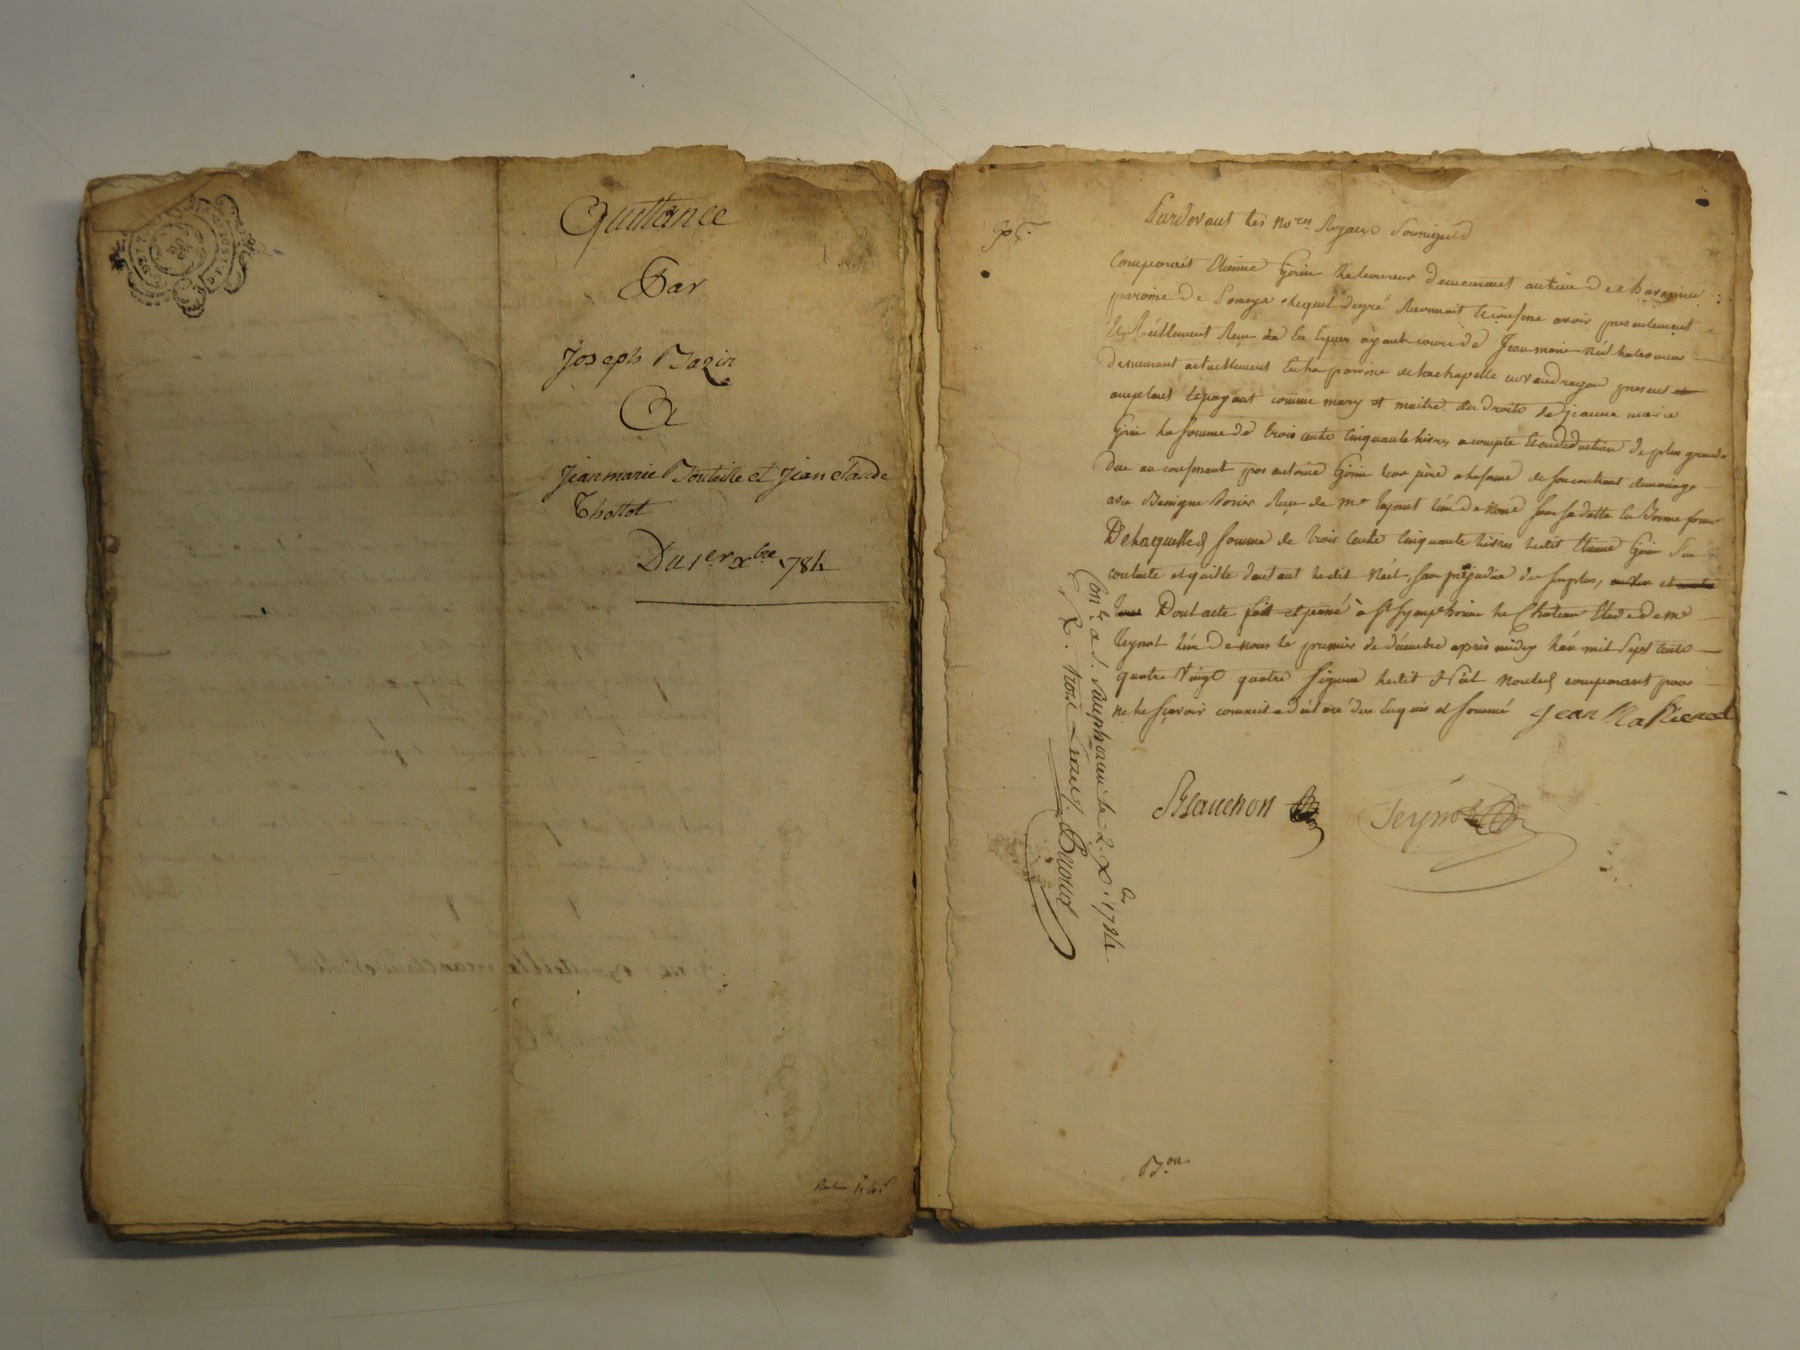 Quittance
Par
Joseph Bazin
A
Jeanmarie Bouteille et Jean claude
Thollot
Du 1er xbre 1784
Pardevant Les No.res Royaux Soussignés
Comparait Etienne Grin Laboureur demeurant au lieu de
paroisse de Pomeys Lequel de gré Reconnait Et confesse avoir presentement
Et Réellement Reçu de En Especes ayant cours de Jean marie Néel Laboureur
demeurant actuellement En La paroisse de La chapelle en vaudragon present
acceptant Et payant comme mary et maitre des droits de Jeanne marie
Grin La somme de trois cents Cinquante Livres a compte Et en deduction de plus grande
due au confessant par antoine Grin leur père a la forme de son contract de mariage
avec Benigne Reçu de Me Teynot L'un de Nous sous sa datte En Bonne forme
De Laquelle somme de trois Cents Cinquante Livres Ledit Etienne Grin S'en
contente et quitte d'autant Ledit Néel, sans prejudice du surplus, et
Dont acte fait et passé à St Symphorien Le Chateau Etude de Me
Teynot L'un de nous Le premier de décembre après midy L'an mil Sept Cents
quatre Vingt quatre Signera Ledit Néel Non Led comparant pour
ne Le Sçavoir comme il a déclaré de ce Enquis et sommé Jean Ma
Blanchon
Teynot
Con.lé a S. Simphorien le 2 xbre 1784
R. Benoud
Bon